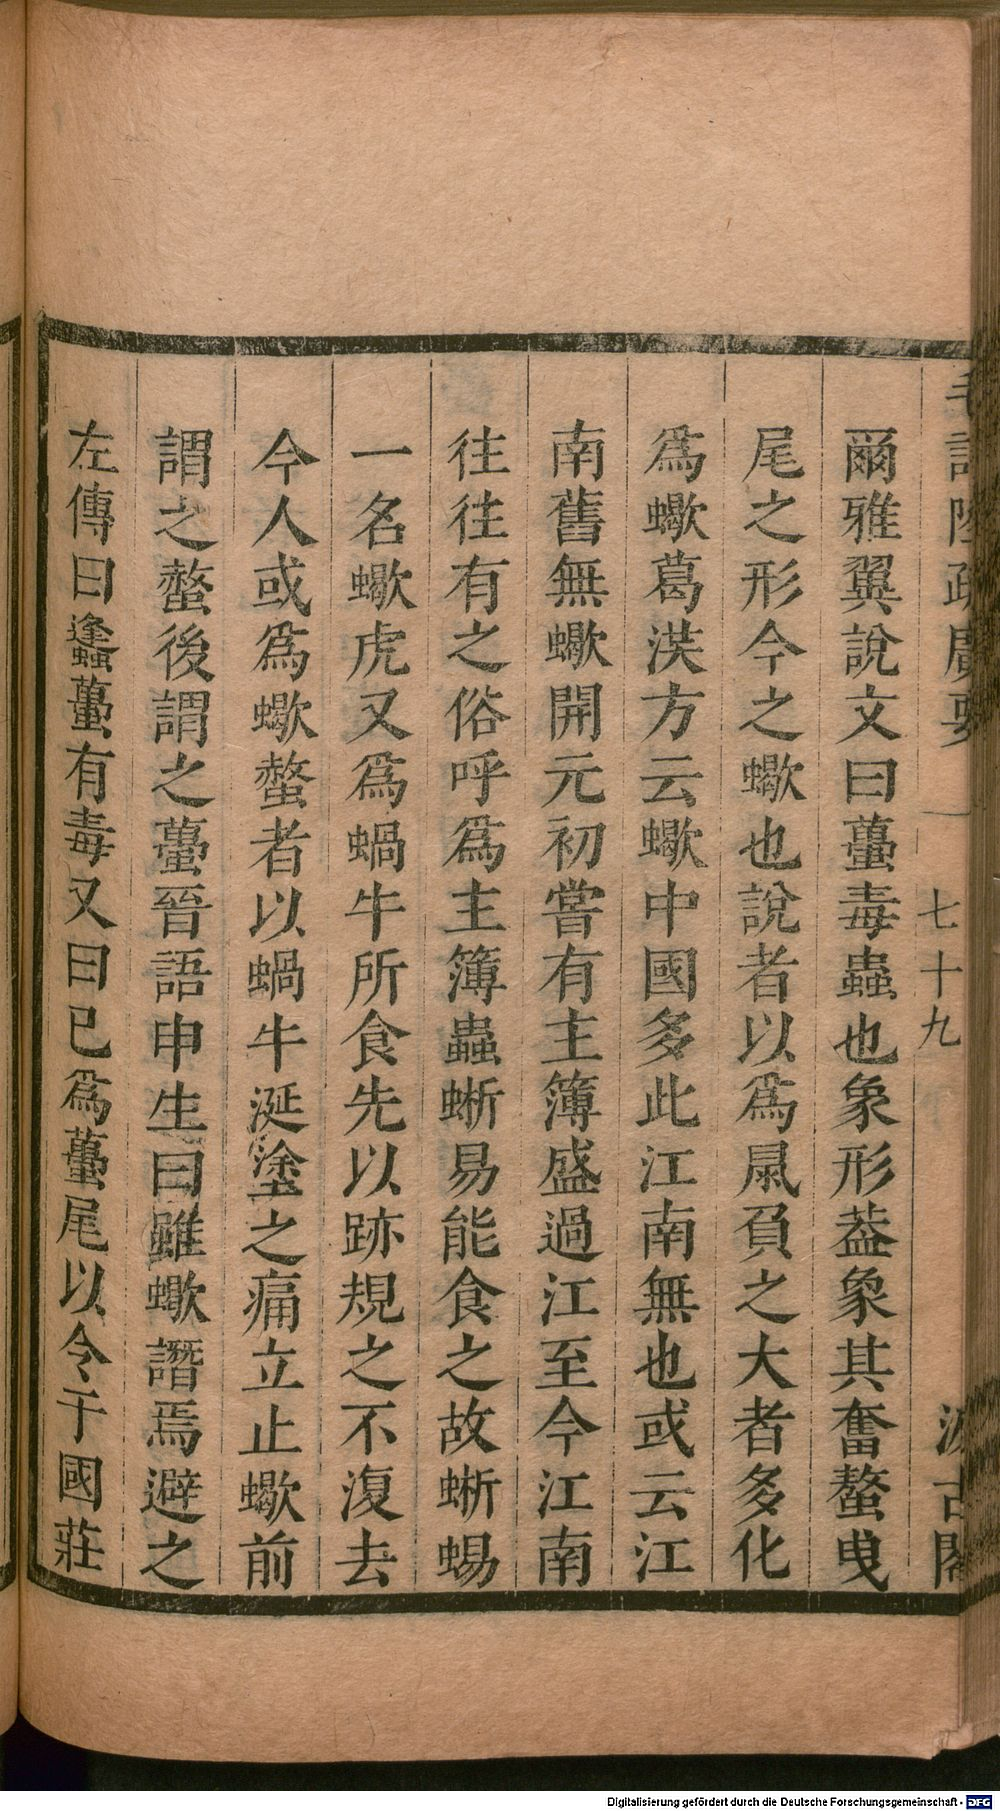 毛詩陸疏廣要
七十九
汲古閣
爾雅翼說文曰蠆毒蟲也象形葢象其奮螯曳
尾之形今之蠍也說者以爲䑕負之大者多化
爲蠍葛洪方云蠍中國多此江南無也或云江
南舊無蠍開元初嘗有主簿盛過江至今江南
往往有之俗呼爲主簿蟲蜥易能食之故蜥蜴
一名蠍虎又爲蝸牛所食先以跡規之不復去
今人或爲蠍螫者以蝸牛涎塗之痛立止蠍前
謂之螯後謂之蠆晉語申生曰雖蠍譖焉避之
左傳曰蠭蠆有毒又曰已爲蠆尾以令于國莊
Digitalisierung gefördert durch die Deutsche Forschungsgemeinschaft - DFG